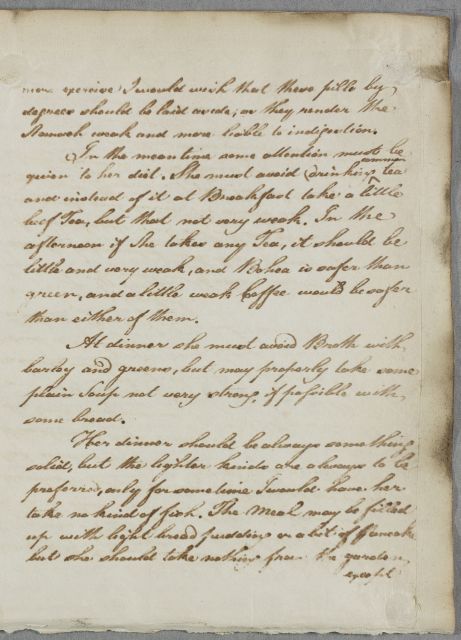 more exercise I would wish that these pills by
degrees should be laid aside; as they render the
Stomach weak and more liable to indigestion.
In the meantime some attention must be
given to her diet. She must avoid drinking common tea
and instead of it at Breakfast take a little
beef Tea, but that not very weak. In the
afternoon if she takes any Tea, it should be
little and very weak, and Bohea is safer than
green, and a little weak Coffee would be safer
than either of them.
At dinner she must avoid Broth with
barley and greens, but may properly take some
plain Soup not very strong, if possible with
some bread.
Her dinner should be always something
solid, but the lighter kinds are always to be
preferred, only for sometime I would have her
take no kind of fish. The Meal may be filled
up with light bread pudding or a bit of Pancake
but she should take nothing from the garden
except